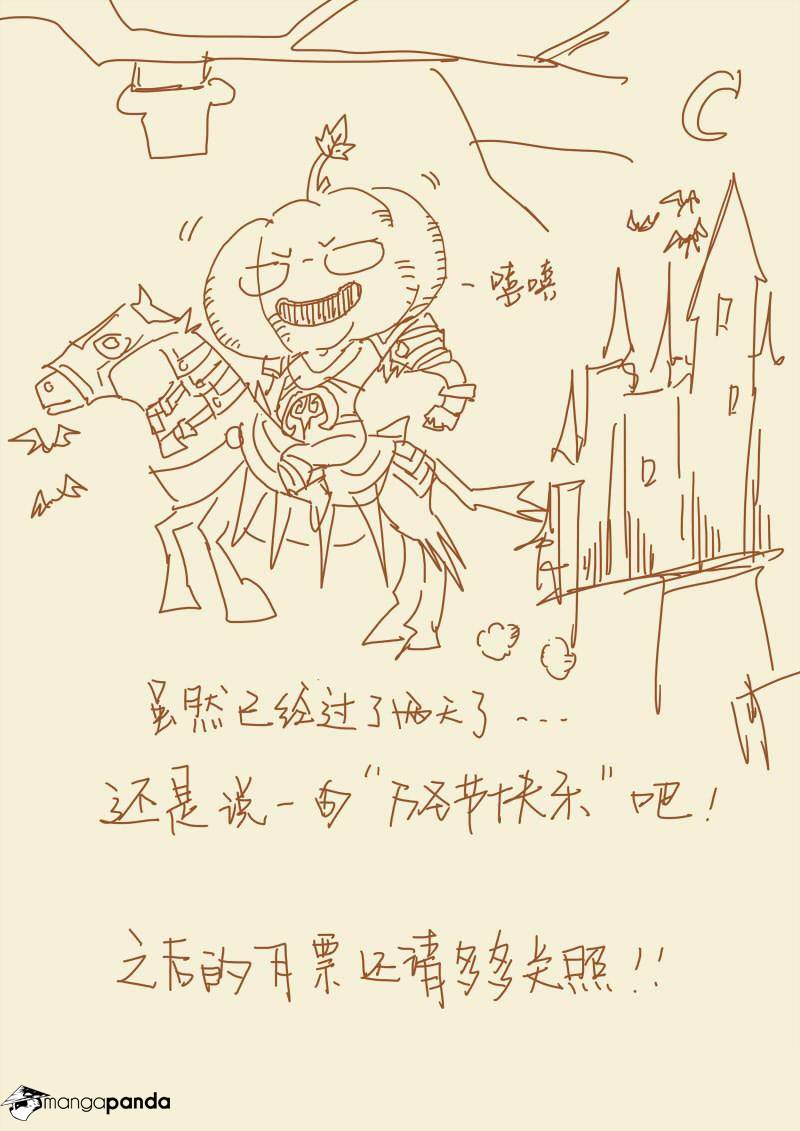 嘻嘻
虽然已经过了两天了...
还是说一句“万圣节快乐”吧!
之后的月票还请多多关照!!
mangapanda